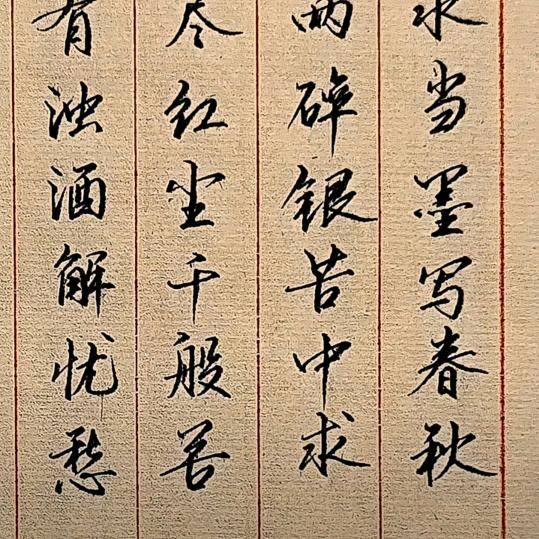 水当墨写春秋
两碎银苦中求
尽红尘千般苦
有浊酒解忧愁